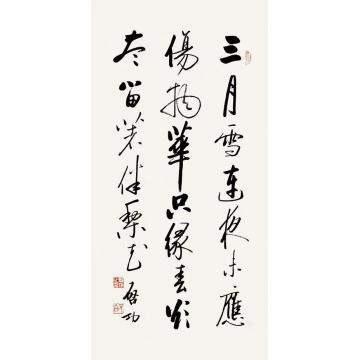 三月雪連夜未應
傷物華只緣春欲
盡留著伴梨花
啟功